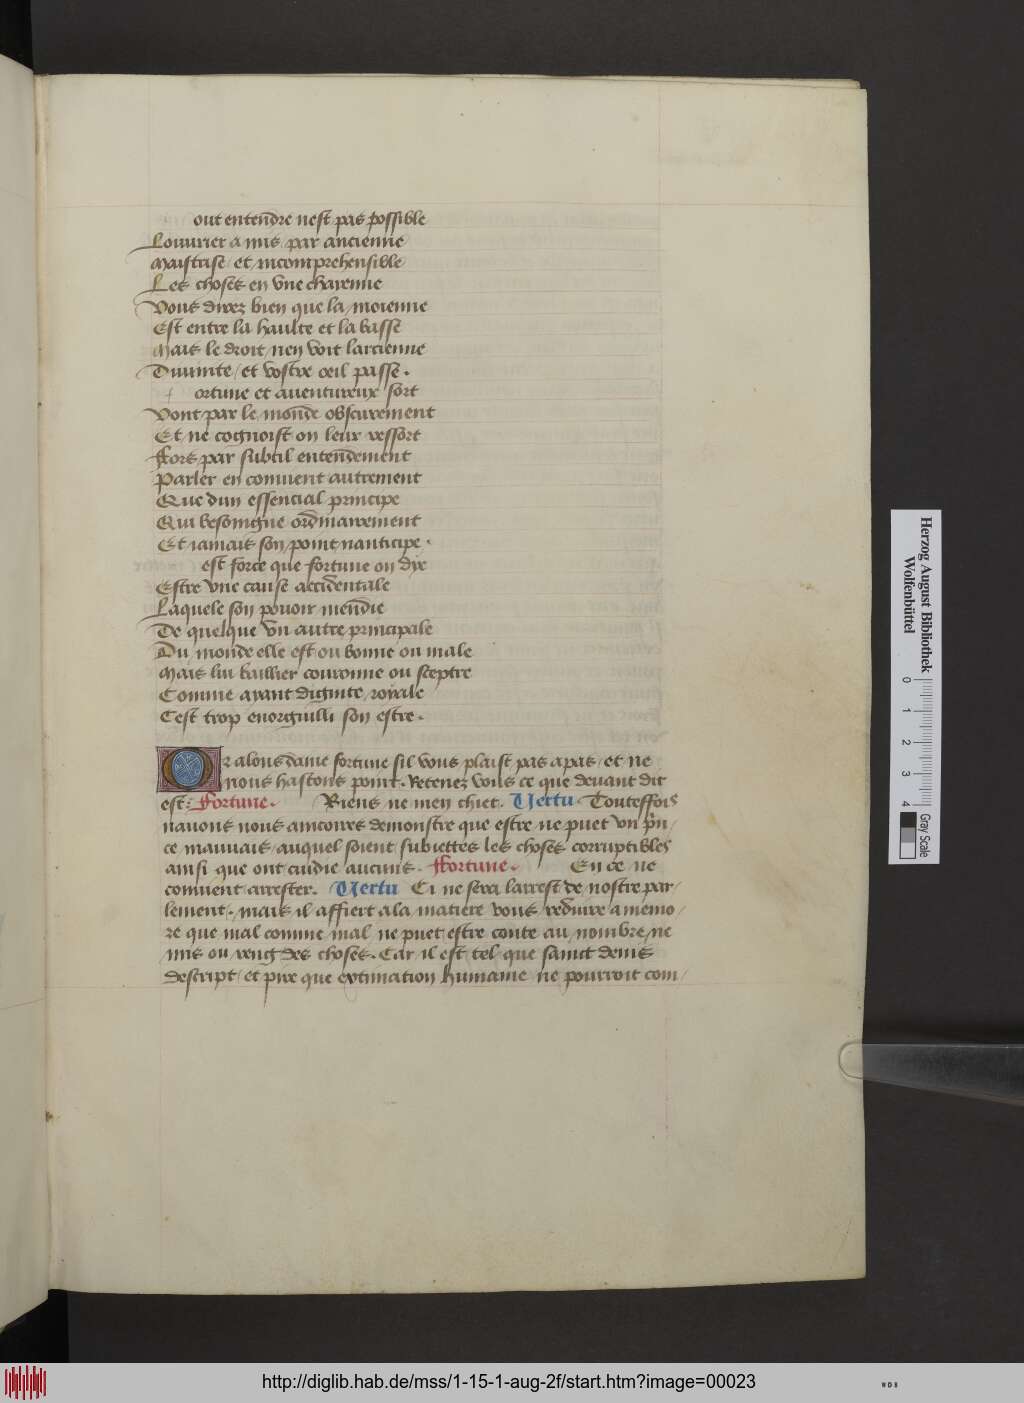 out entendre nest pas possible
Louurier a mis par ancienne
Maistrise et incomprehensible
Les choses en vne charenne
Vous direz bien que la moienne
Est entre la haulte et la basse
Mais le droit nen voit larcienne
Diuinite et vostre oeil passe .
f ortune et auentureux sort
Vont par le monde obscurement
Et ne cognoist on leur ressort
ffors par subtil entendement
Parler en conuient autrement
Que dun essencial principe
Qui besoingne ordinairement
Et iamais son point nanticipe .
est force que fortune on dye
Estre vne cause accidentale
Laquele son pouoir mendie
De quelque vn autre principale
Du monde elle est ou bonne ou male
Mais lui baillier couronne ou sceptre
Comme ayant dignite royale
Cest trop enorguilli son estre .
Or alons dame fortune sil vous plaist pas apas et ne
nous hastons point . Retenez vous ce que deuant dit
est : ffortune . Riens ne men chiet . Vertu . Touteffois
nauons nous aincores demonstre que estre ne puet vn prin/
ce mauuais auquel soient subiettes les choses corruptibles
ainsi que ont cuidie aucuns . ffortune . En ce ne
conuient arrester . Vertu Ci ne sera larrest de nostre par/
lement . mais il affiert ala matiere vous reduire a memo/
re que mal comme mal ne puet estre conte au nombre ne
mis ou reng des choses . Car il est tel que sainct denis
descript et pire que extimacion humaine ne pourroit com/
Herzog August Bibliothek
Wolfenbüttel
0 1 2 3 4
Gray Scale
http://diglib.hab.de/mss/1-15-1-aug-2f/start.htm?image=00023
WDB